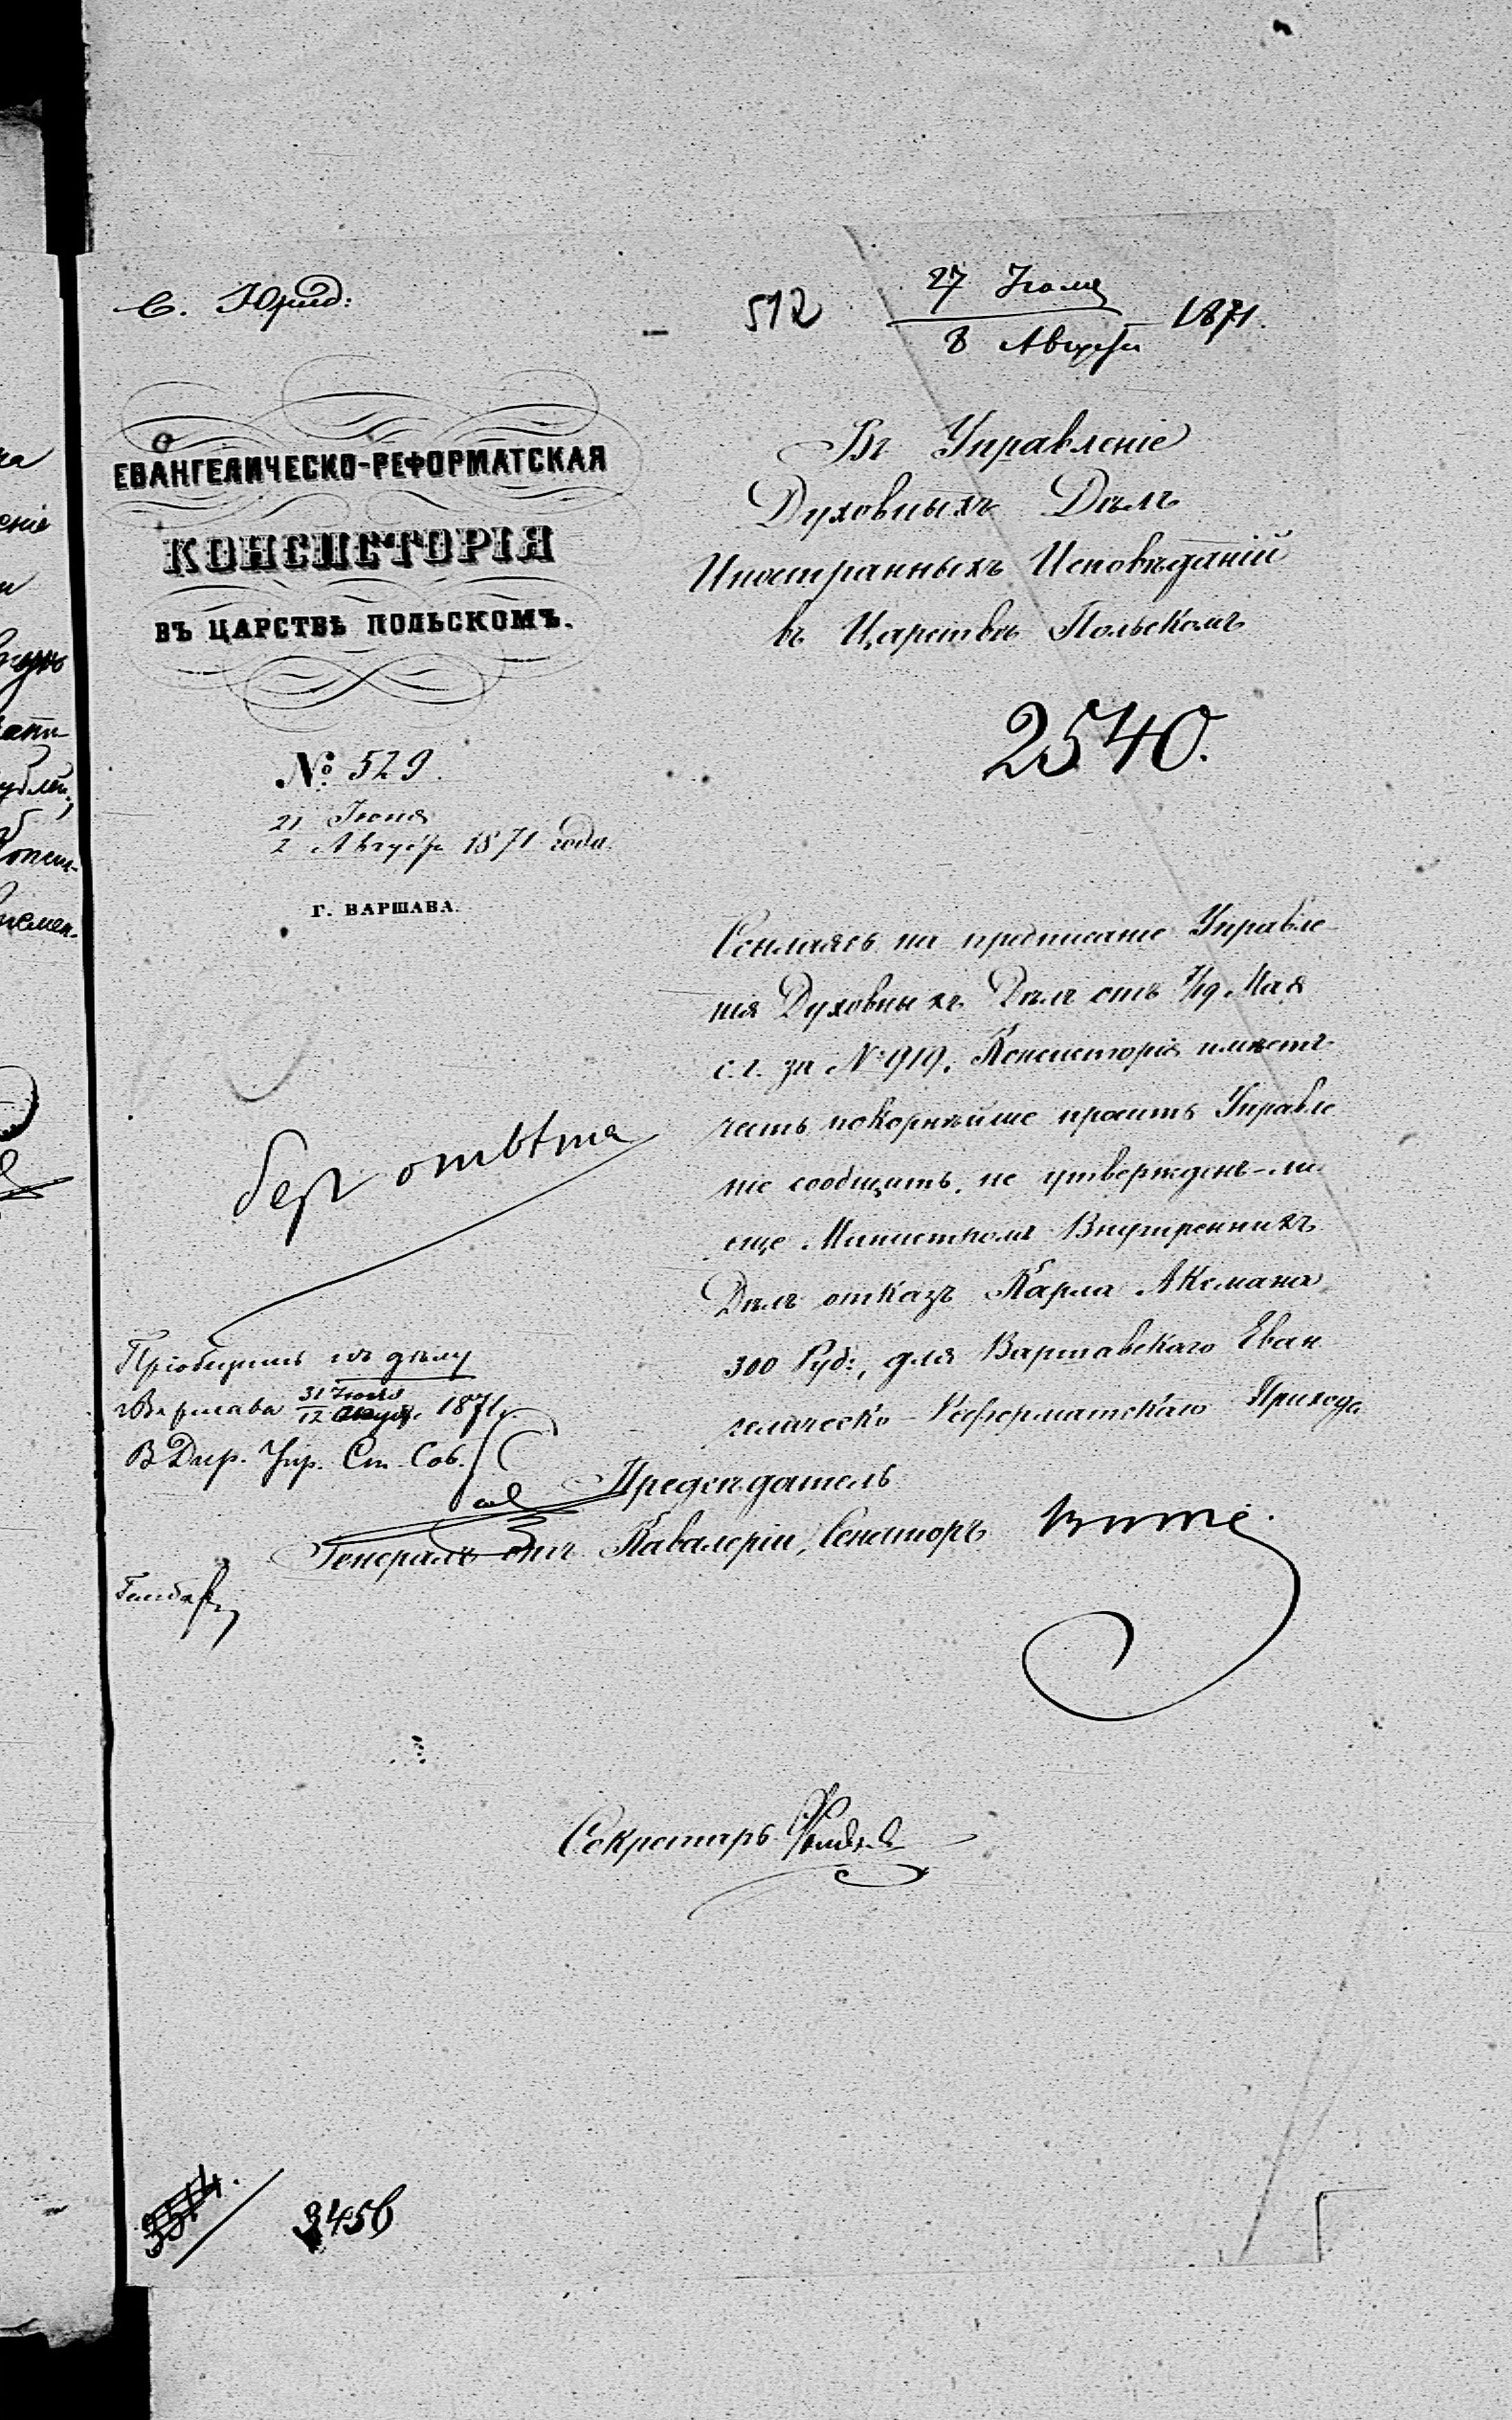 С. Юрид:
512
27 Іюля
8 Августа 1871.
ЕВАНГЕЛИЧЕСКО-РЕФОРМАТСКАЯ
КОНСИСТОРІЯ
ВЪ ЦАРСТВѢ ПОЛЬСКОМЪ.
№ 529.
21 Іюля
2 Августа 1871 года
Г. ВАРШАВА.
Въ Управленіе
Духовныхъ Дѣлъ
Иностранныхъ Исповѣданій
въ Царствѣ Польскомъ
2540.
Ссылаясь на предписаніе Управле-
нія Духовныхъ Дѣлъ отъ 7/19 Мая
с. г. за № 919, Консисторія имѣетъ
честь покорнѣйше просить Управле
ніе сообщить, не утвержденъ-ли
еще Министромъ Внутреннихъ
Дѣлъ отказъ Карла Акемана
300 Руб:, для Варшавскаго Еван
гелическо-Реформатскаго Прихода
безъ отвѣта
Пріобщить къ дѣлу
Варшава 31 Іюля
12 Август. 1871 г.
В Дир. Упр. Ст. Сов.
Предсѣдатель
Генералъ отъ Кавалеріи, Сенаторъ Витте.
Секретарь
3514.
3456